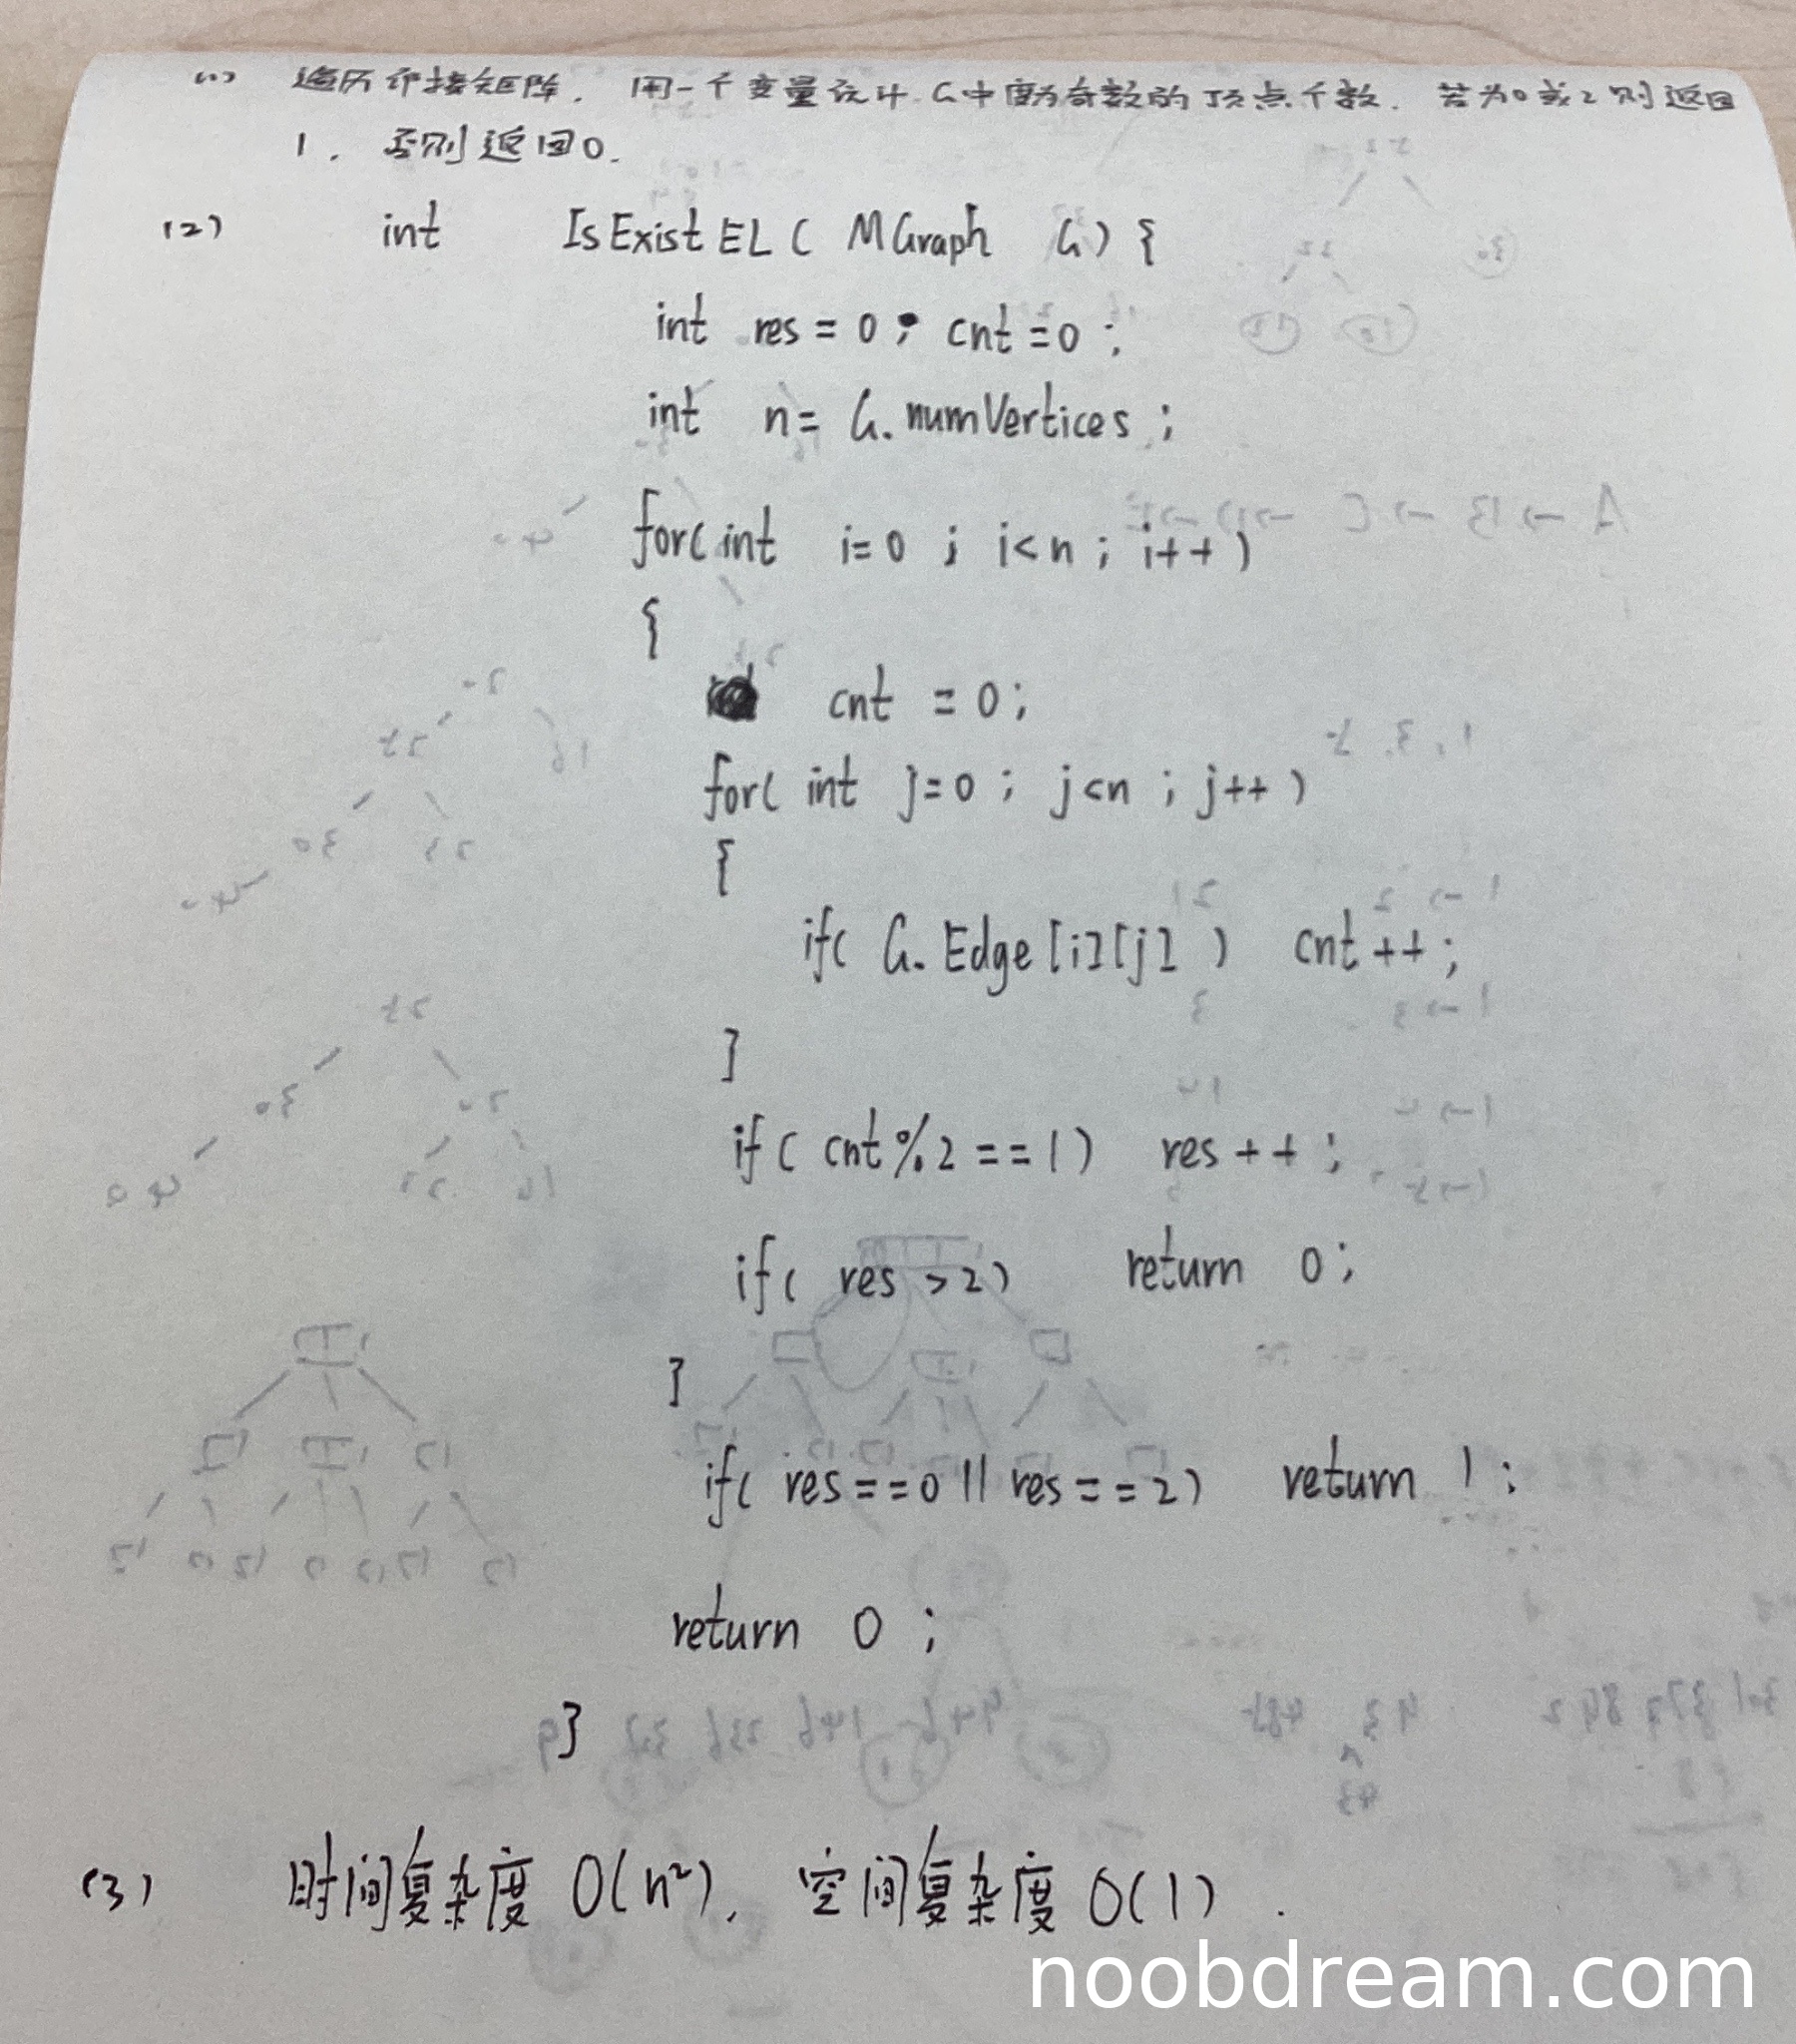 (1) 遍历邻接矩阵. 用一个变量统计G中度为奇数的顶点个数. 若为0或2则返回
1. 否则返回0.
(2) int IsExistEL( MGraph G) {
int res = 0 ; cnt = 0 ;
int n = G. numVertices ;
for( int i=0 ; i<n ; i++ )
{
cnt = 0 ;
for( int j=0 ; j<n ; j++ )
{
if( G. Edge [i][j] ) cnt ++ ;
}
if ( cnt%2 == 1 ) res ++ ;
if( res > 2 ) return 0 ;
}
if( res == 0 || res == 2 ) return 1 ;
return 0 ;
}
(3) 时间复杂度 O(n²), 空间复杂度 O(1) .
noobdream.com